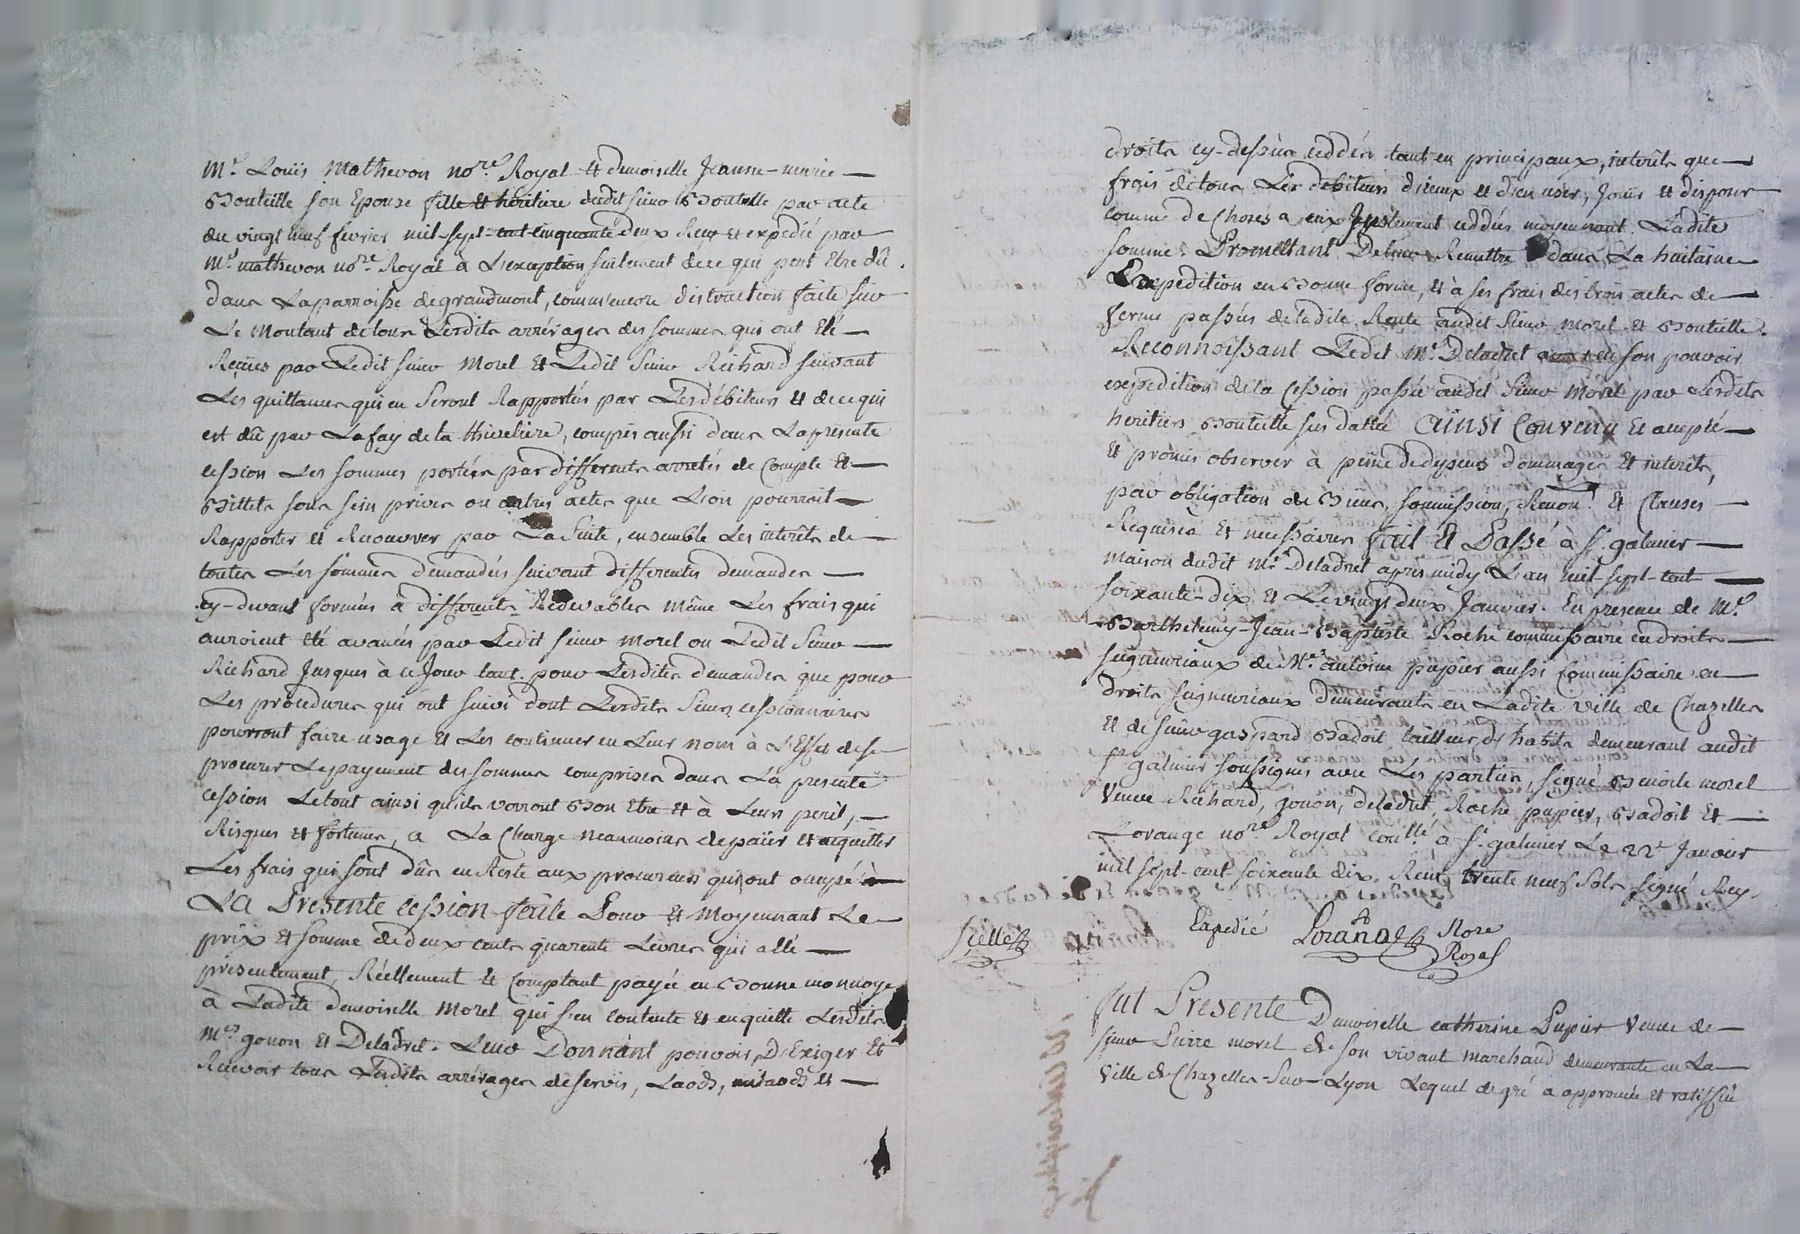 Mᵉ Louis Mathevon noʳᵉ Royal et demoiselle Jeanne-marie
Bouteille son Epouse fille et heritiere dudit sieur Bouteille par acte
du vingt neuf fevrier mil-sept-cent cinquante deux Reçu et expedié par
Mᵉ mathevon noʳᵉ Royal à L'exception seulement de ce qui peut Etre dû
dans La parroisse de grandmont, comme encore distraction faite sur
Le montant de tous Lesdits arrérages des sommes qui ont Eté
Reçues par Ledit sieur Morel et Ledit sieur Richard suivant
Les quittances qui en seront Rapportées par Les débiteurs et de ce qui
est dû par Lafay de la thiveliere, compris aussi dans La presente
cession Les sommes portées par différents arretés de Compte et
Billets sous sein privés ou autres actes que L'on pourroit
Rapporter et Recouvrer par La suite, ensemble Les interêts de
toutes Les sommes demandées suivant differentes demandes
cy-devant formées à differents Redevables même Les frais qui
auroient été avancés par Ledit sieur morel ou Ledit sieur
Richard Jusques à ce Jour tant pour Lesdites demandes que pour
Les procedures qui ont suivi dont Lesdits sieurs cessionnaires
pourront faire usage et Les continuer en Leur nom à L'Effet de se
procurer Le payement des sommes comprises dans La presente
cession Le tout ainsi qu'ils verront Bon Etre et à Leurs peril,
Risques et fortunes, a La Charge neanmoins de païer et acquitter
Les frais qui sont dûs en Reste aux procureurs qui ont occupé
La Presente cession faite Pour et Moyennant Le
prix et somme de deux cents quarente Livres qui a été
présentement Réellement et Comptant payée en Bonne monnoye
à Ladite demoiselle Morel qui s'en contente et en quitte Lesdits
Mᵉˢ gonon et Deladret. Leur Donnant pouvoir D'Exiger Et
Recevoir tous Lesdits arrérages de servis, Laods, milaods et
droits cy-dessus cédés tant en principaux, interêts que
frais de tous Les debiteurs d'iceux et d'en user, Jouir et disposer
comme de Choses a eux Justement cédées moyennant Ladite
somme. Promettant De leur Remettre dans La huitaine
Expedition en Bonne forme, et à ses frais des trois actes de
ferme passés de ladite Rente audit sieur Morel et Bouteille.
Reconnoissant Ledit Mᵉ Deladret en son pouvoir
expedition de la Cession passée audit sieur Morel par Lesdits
heritiers Bouteille sus datté Ainsi Convenu Et accepté
et promis observer à peine de depens dommages et interêts
par obligation de Biens, soumission, Renon. et Clauses
Requises et necessaires fait et Passé à St. galmier
maison dudit Mᵉ Deladret apres midy L'an mil-sept-cent
soixante-dix et Le vingt deux Janvier. En presence de Mᵉ
Barthelemy-Jean-Baptiste Roche commissaire en droits
seigneuriaux de Mᵉ antoine pupier aussi Commissaire en
droits seigneuriaux demeurants en Ladite ville de Chazelles
et de sieur gaspard Badoit tailleur d'habits demeurant audit
St galmier soussignés avec Les parties, signé Benoite morel
Veuve Richard, gonon, deladret, Roche, pupier, Badoit et
Lorange noʳᵉ Royal Contʳˡᵉ à St. galmier Le 22ᵉ Janvier
mil sept-cent soixante dix. Reçu trente neuf sols signé Rey.
scellé Expedié Lorange Nore
Royal
fut Presente Demoiselle catherine Pupier Veuve de
sieur Pierre morel de son vivant marchand demeurante en La
ville de Chazelles-sur-Lyon Lequel de gré a approuvée et ratiffiée